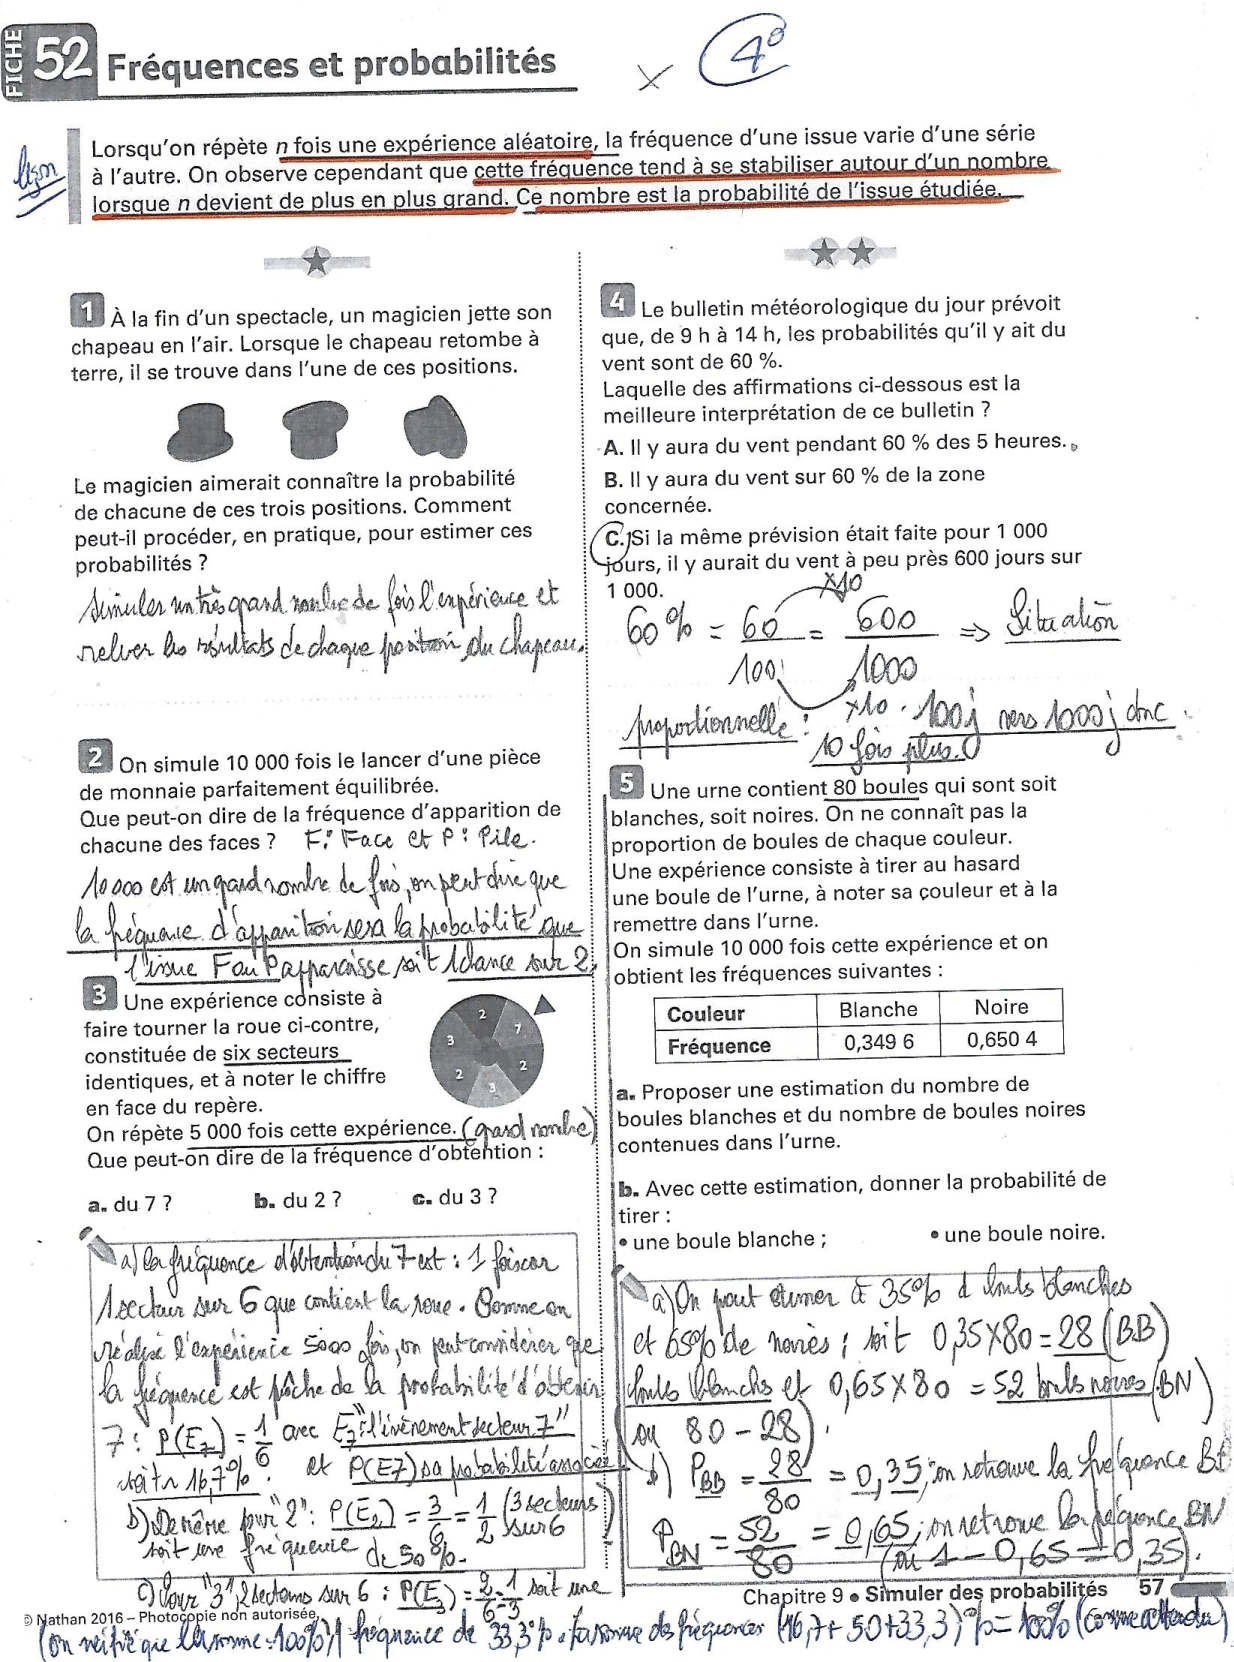 FICHE 52 Fréquences et probabilités
4e
leçon
Lorsqu'on répète n fois une expérience aléatoire, la fréquence d'une issue varie d'une série
à l'autre. On observe cependant que cette fréquence tend à se stabiliser autour d'un nombre
lorsque n devient de plus en plus grand. Ce nombre est la probabilité de l'issue étudiée.
1 À la fin d'un spectacle, un magicien jette son
chapeau en l'air. Lorsque le chapeau retombe à
terre, il se trouve dans l'une de ces positions.
Le magicien aimerait connaître la probabilité
de chacune de ces trois positions. Comment
peut-il procéder, en pratique, pour estimer ces
probabilités ?
Simuler un très grand nombre de fois l'expérience et
relever les résultats de chaque position du chapeau.
2 On simule 10 000 fois le lancer d'une pièce
de monnaie parfaitement équilibrée.
Que peut-on dire de la fréquence d'apparition de
chacune des faces ? F : Face et P : Pile.
10 000 est un grand nombre de fois, on peut dire que
la fréquence d'apparition sera la probabilité que
l'issue F ou P apparaisse soit 1 chance sur 2.
3 Une expérience consiste à
faire tourner la roue ci-contre,
constituée de six secteurs
identiques, et à noter le chiffre
en face du repère.
2
7
2
3
2
3
On répète 5 000 fois cette expérience. (grand nombre)
Que peut-on dire de la fréquence d'obtention :
a. du 7 ? b. du 2 ? c. du 3 ?
a) la fréquence d'obtention du 7 est : 1 fois car
1 secteur sur 6 que contient la roue. Comme on
réalise l'expérience 5000 fois, on peut considérer que
la fréquence est proche de la probabilité d'obtenir
7 : P(E7) = 1/6 avec E7 : "l'évènement secteur 7"
soit ≈ 16,7%. et P(E7) sa probabilité associée
b) De même pour "2" : P(E2) = 3/6 = 1/2 (3 secteurs sur 6)
soit une fréquence de 50 %.
c) Pour "3", 2 secteurs sur 6 : P(E3) = 2/6 = 1/3 soit une
fréquence de 33,3 %. La somme des fréquences (16,7 + 50 + 33,3) % = 100% (comme attendu)
(on vérifie que la somme = 100%)
4 Le bulletin météorologique du jour prévoit
que, de 9 h à 14 h, les probabilités qu'il y ait du
vent sont de 60 %.
Laquelle des affirmations ci-dessous est la
meilleure interprétation de ce bulletin ?
A. Il y aura du vent pendant 60 % des 5 heures.
B. Il y aura du vent sur 60 % de la zone
concernée.
C. Si la même prévision était faite pour 1 000
jours, il y aurait du vent à peu près 600 jours sur
1 000.
x10
60 % = 60/100 = 600/1000 => Situation
x10
proportionnelle : 100 j vers 1000 j donc
10 fois plus.
5 Une urne contient 80 boules qui sont soit
blanches, soit noires. On ne connaît pas la
proportion de boules de chaque couleur.
Une expérience consiste à tirer au hasard
une boule de l'urne, à noter sa couleur et à la
remettre dans l'urne.
On simule 10 000 fois cette expérience et on
obtient les fréquences suivantes :
Couleur Blanche Noire
Fréquence 0,349 6 0,650 4
a. Proposer une estimation du nombre de
boules blanches et du nombre de boules noires
contenues dans l'urne.
b. Avec cette estimation, donner la probabilité de
tirer :
• une boule blanche ; • une boule noire.
a) On peut estimer à 35% d boules blanches
et 65% de noires ; soit 0,35 x 80 = 28 (BB)
boules blanches et 0,65 x 80 = 52 boules noires (BN)
(ou 80 - 28).
b) PBB = 28/80 = 0,35 ; on retrouve la fréquence BB
PBN = 52/80 = 0,65 ; on retrouve la fréquence BN
(ou 1 - 0,65 = 0,35).
Chapitre 9 • Simuler des probabilités 57
© Nathan 2016 – Photocopie non autorisée.